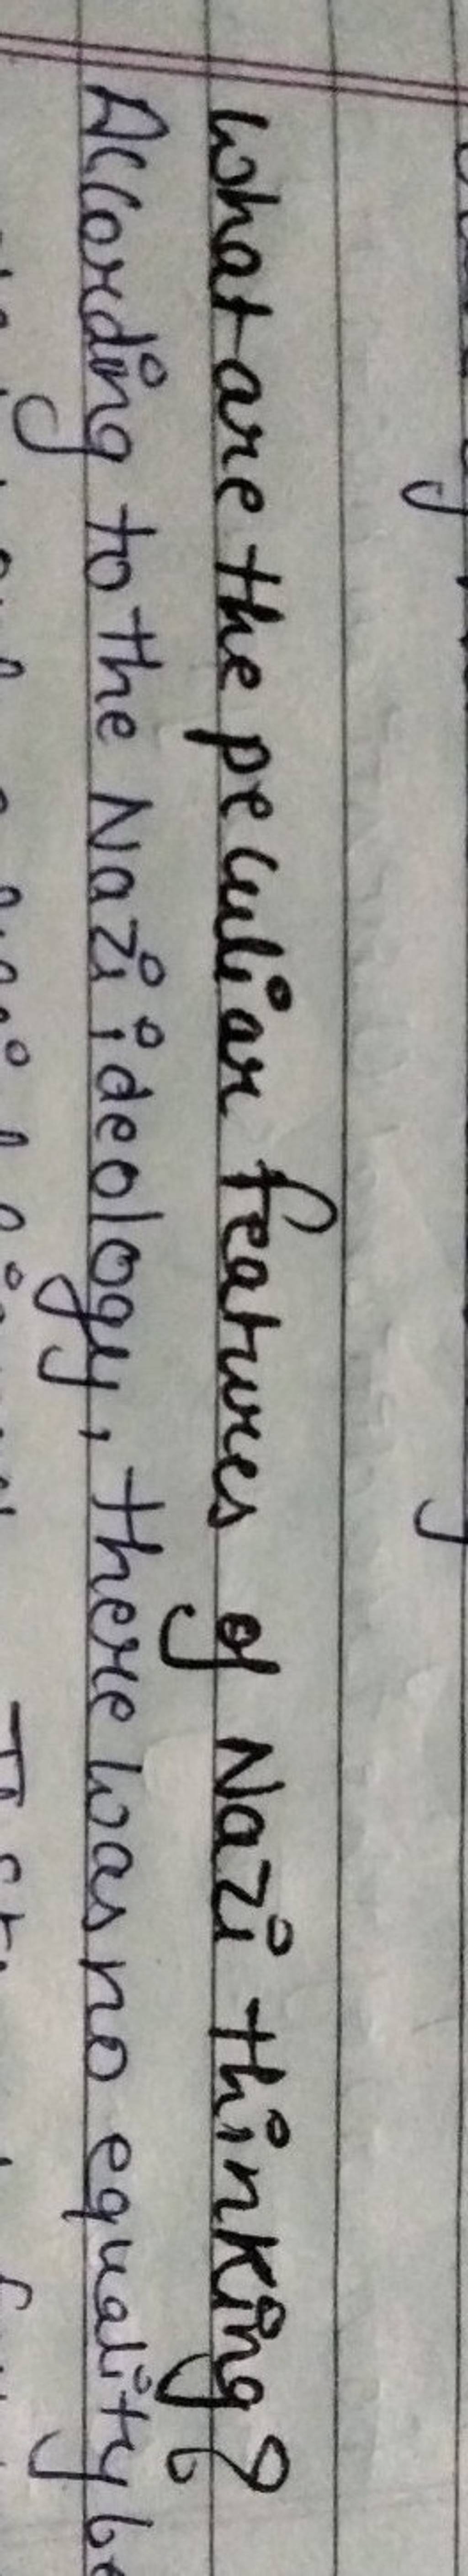 What are the peculiar features of Nazi thinking?
According to the Nazi ideology, there was no equality be